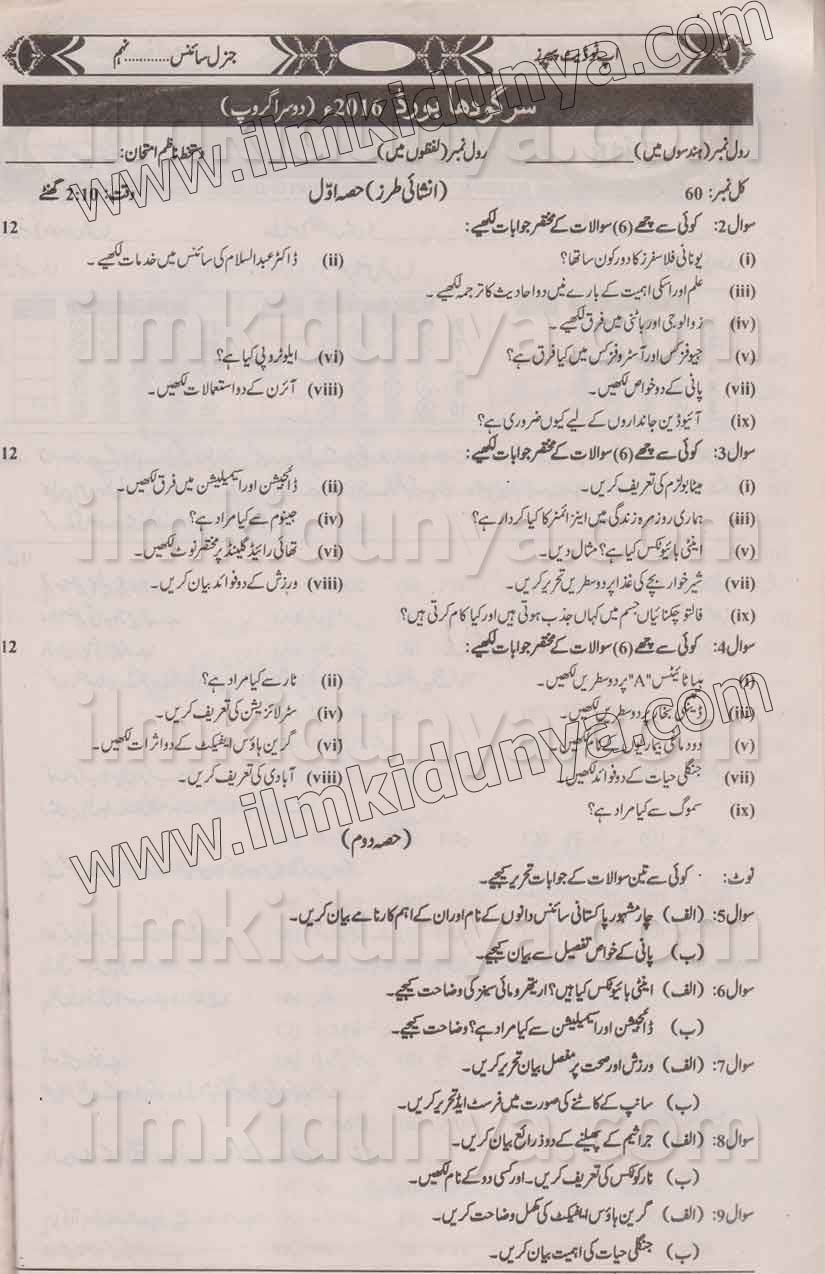 اپ ٹو ڈیٹ پیپرز جنرل سائنس...........نہم
سرگودھا بورڈ 2016ء (دوسرا گروپ)
رول نمبر (ہندسوں میں) رول نمبر (لفظوں میں) دستخط ناظم امتحان:
کل نمبر: 60 (انشائی طرز) حصہ اوّل وقت: 2:10 گھنٹے
سوال 2: کوئی سے چھے (6) سوالات کے مختصر جوابات لکھیے: 12
(i) یونانی فلاسفرز کا دور کون سا تھا؟ (ii) ڈاکٹر عبدالسلام کی سائنس میں خدمات لکھیے۔
(iii) علم اور اسکی اہمیت کے بارے میں دو احادیث کا ترجمہ لکھیے۔
(iv) زوالوجی اور باٹنی میں فرق لکھیے۔
(v) جیوفزکس اور آسٹروفزکس میں کیا فرق ہے؟ (vi) ایلوٹروپی کیا ہے؟
(vii) پانی کے دو خواص لکھیں۔ (viii) آئرن کے دو استعمالات لکھیں۔
(ix) آئیوڈین جانداروں کے لیے کیوں ضروری ہے؟
سوال 3: کوئی سے چھے (6) سوالات کے مختصر جوابات لکھیے: 12
(i) میٹابولزم کی تعریف کریں۔ (ii) ڈائجیشن اور اسیمیلیشن میں فرق لکھیں۔
(iii) ہماری روزمرہ زندگی میں اینزائمز کا کیا کردار ہے؟ (iv) جینوم سے کیا مراد ہے؟
(v) اینٹی بائیوٹکس کیا ہے؟ مثال دیں۔ (vi) تھائی رائیڈ گلینڈ پر مختصر نوٹ لکھیں۔
(vii) شیر خوار بچے کی غذا پر دو سطریں تحریر کریں۔ (viii) ورزش کے دو فوائد بیان کریں۔
(ix) فالتو چکنائیاں جسم میں کہاں جذب ہوتی ہیں اور کیا کام کرتی ہیں؟
سوال 4: کوئی سے چھے (6) سوالات کے مختصر جوابات لکھیے: 12
(i) ہیپاٹائیٹس "A" پر دو سطریں لکھیں۔ (ii) ٹار سے کیا مراد ہے؟
(iii) ڈینگی بخار پر دو سطریں لکھیں۔ (iv) سٹرلائزیشن کی تعریف کریں۔
(v) دو دماغی بیماریوں کے نام لکھیں۔ (vi) گرین ہاؤس ایفیکٹ کے دو اثرات لکھیں۔
(vii) جنگلی حیات کے دو فوائد لکھیں۔ (viii) آبادی کی تعریف کریں۔
(ix) سموگ سے کیا مراد ہے؟
(حصہ دوم)
نوٹ: کوئی سے تین سوالات کے جوابات تحریر کیجیے۔
سوال 5: (الف) چار مشہور پاکستانی سائنس دانوں کے نام اور ان کے اہم کارنامے بیان کریں۔
(ب) پانی کے خواص تفصیل سے بیان کیجیے۔
سوال 6: (الف) اینٹی بائیوٹکس کیا ہیں؟ اریتھرومائی سینز کی وضاحت کیجیے۔
(ب) ڈائجیشن اور اسیمیلیشن سے کیا مراد ہے؟ وضاحت کیجیے۔
سوال 7: (الف) ورزش اور صحت پر مفصل بیان تحریر کریں۔
(ب) سانپ کے کاٹنے کی صورت میں فرسٹ ایڈ تحریر کریں۔
سوال 8: (الف) جراثیم کے پھیلنے کے دو ذرائع بیان کریں۔
(ب) نارکوٹکس کی تعریف کریں۔ اور کسی دو کے نام لکھیں۔
سوال 9: (الف) گرین ہاؤس ایفیکٹ کی مکمل وضاحت کریں۔
(ب) جنگلی حیات کی اہمیت بیان کریں۔
www.ilmkidunya.com
www.ilmkidunya.com
ilmkidunya.com
ilmkidunya.com
ilmkidunya.com
ilmkidunya.com
ilmkidunya.com
ilmkidunya.com
ilmkidunya.com